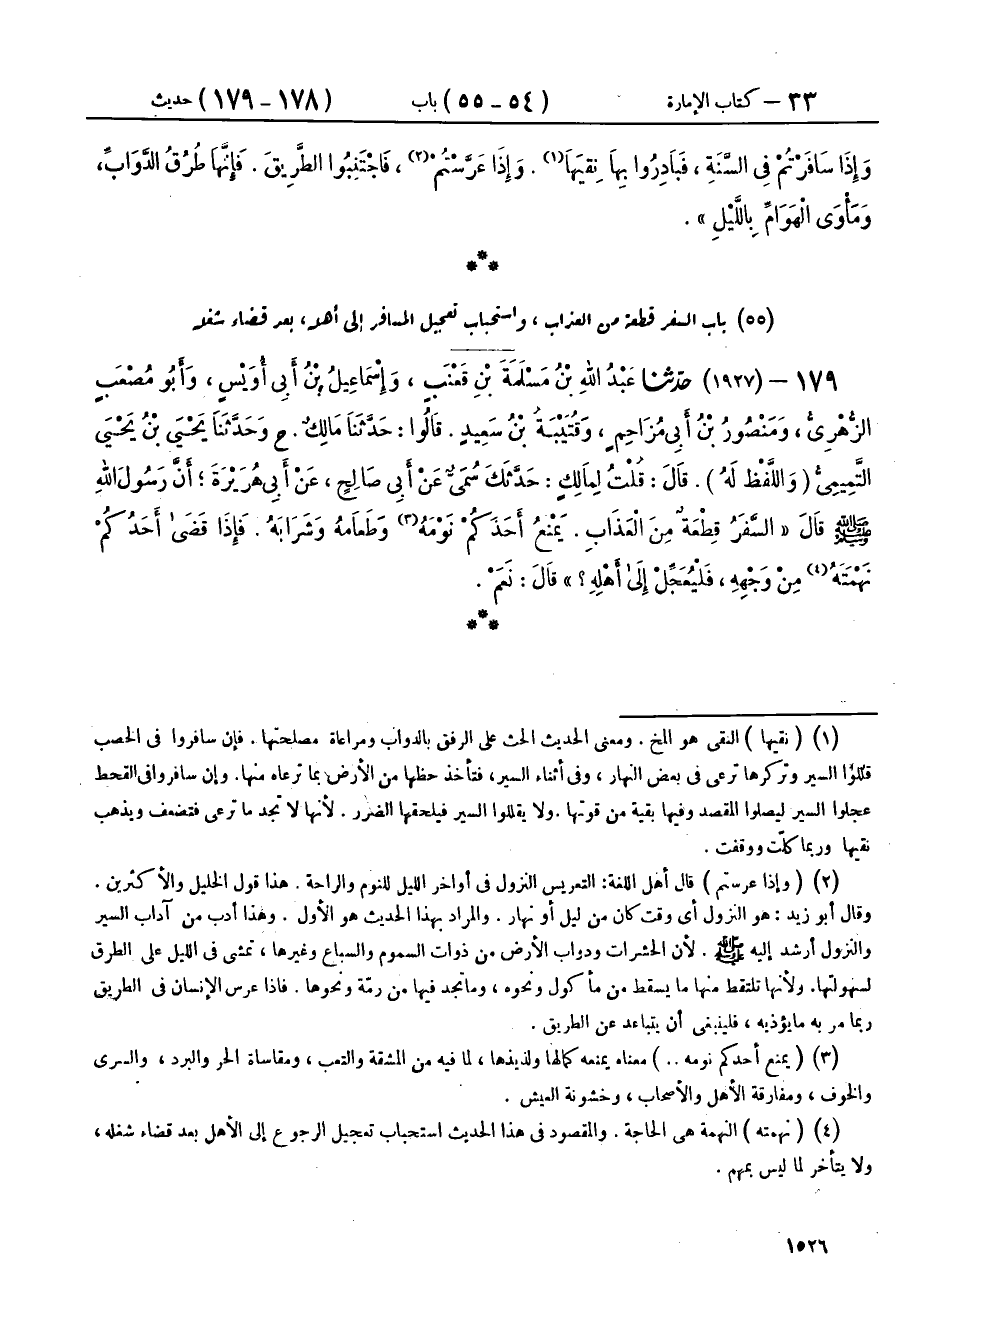 ٣٣ – كتاب الإمارة (٥٤ – ٥٥) باب (١٧٨ – ١٧٩) حديث
وَإِذَا سَافَرْتُمْ فِي السَّنَةِ ، فَبَادِرُوا بِهَا نِقْيَهَا(١) . وَإِذَا عَرَّسْتُمْ(٢) ، فَاجْتَنِبُوا الطَّرِيقَ . فَإِنَّهَا طُرُقُ الدَّوَابِّ،
وَمَأْوَى الْهَوَامِّ بِاللَّيْلِ » .
(٥٥) باب السفر قطعة من العذاب ، واستحباب تعجيل المسافر إلى أهله ، بعد قضاء شغله
١٧٩ – (١٩٢٧) حدّثنا عَبْدُ اللهِ بْنُ مَسْلَمَةَ بْنِ قَعْنَبٍ ، وَإِسْمَاعِيلُ بْنُ أَبِي أُوَيْسٍ ، وَأَبُو مُصْعَبٍ
الزُّهْرِىُّ ، وَمَنْصُورُ بْنُ أَبِي مُزَاحِمٍ ، وَقُتَيْبَةُ بْنُ سَعِيدٍ . قَالُوا : حَدَّثَنَا مَالِكٌ . ح وَحَدَّثَنَا يَحْيَى بْنُ يَحْيَى
التَّمِيمِىُّ ( وَاللَّفْظُ لَهُ ) . قَالَ : قُلْتُ لِمَالِكٍ : حَدَّثَكَ سُمَىٌّ عَنْ أَبِي صَالِحٍ ، عَنْ أَبِي هُرَيْرَةَ ؛ أَنَّ رَسُولَ اللهِ
ﷺ قَالَ « السَّفَرُ قِطْعَةٌ مِنَ الْعَذَابِ . يَمْنَعُ أَحَدَكُمْ نَوْمَهُ(٣) وَطَعَامَهُ وَشَرَابَهُ . فَإِذَا قَضَىٰ أَحَدُكُمْ
نَهْمَتَهُ(٤) مِنْ وَجْهِهِ ، فَلْيُعَجِّلْ إِلَىٰ أَهْلِهِ ؟ » قَالَ : نَعَمْ .
(١) ( نقيها ) النقى هو المخ . ومعنى الحديث الحث على الرفق بالدواب ومراعاة مصلحتها . فإن سافروا فى الخصب
قللوا السير وتركرها ترعى فى بعض النهار ، وفى أثناء السير، فتأخذ حظها من الأرض بما ترعاه منها. وإن سافروا فى القحط
عجلوا السير ليصلوا المقصد وفيها بقية من قوتها .ولا يقللوا السير فيلحقها الضرر . لأنها لا تجد ما ترعى فتضعف ويذهب
نقيها وربما كلّت ووقفت .
(٢) ( وإذا عرستم ) قال أهل اللغة: التعريس النزول فى أواخر الليل للنوم والراحة . هذا قول الخليل والأكثرين .
وقال أبو زيد : هو النزول أى وقت كان من ليل أو نهار . والمراد بهذا الحديث هو الأول . وهذا أدب من آداب السير
والنزول أرشد إليه ﷺ . لأن الحشرات ودواب الأرض من ذوات السموم والسباع وغيرها ، تمشى فى الليل على الطرق
لسهولتها. ولأنها تلتقط منها ما يسقط من مأكول ونحوه ، وماتجد فيها من رمّة ونحوها . فاذا عرس الإنسان فى الطريق
ربما مر به مايؤذيه ، فلينبغى أن يتباعد عن الطريق .
(٣) ( يمنع أحدكم نومه .. ) معناه يمنعه كمالها ولذيذها ، لما فيه من المشقة والتعب ، ومقاساة الحر والبرد ، والسرى
والخوف ، ومفارقة الأهل والأصحاب ، وخشونة العيش .
(٤) ( نهمته ) النهمة هى الحاجة . والمقصود فى هذا الحديث استحباب تعجيل الرجوع إلى الأهل بعد قضاء شغله ،
ولا يتأخر لما ليس بمهم .
١٥٢٦